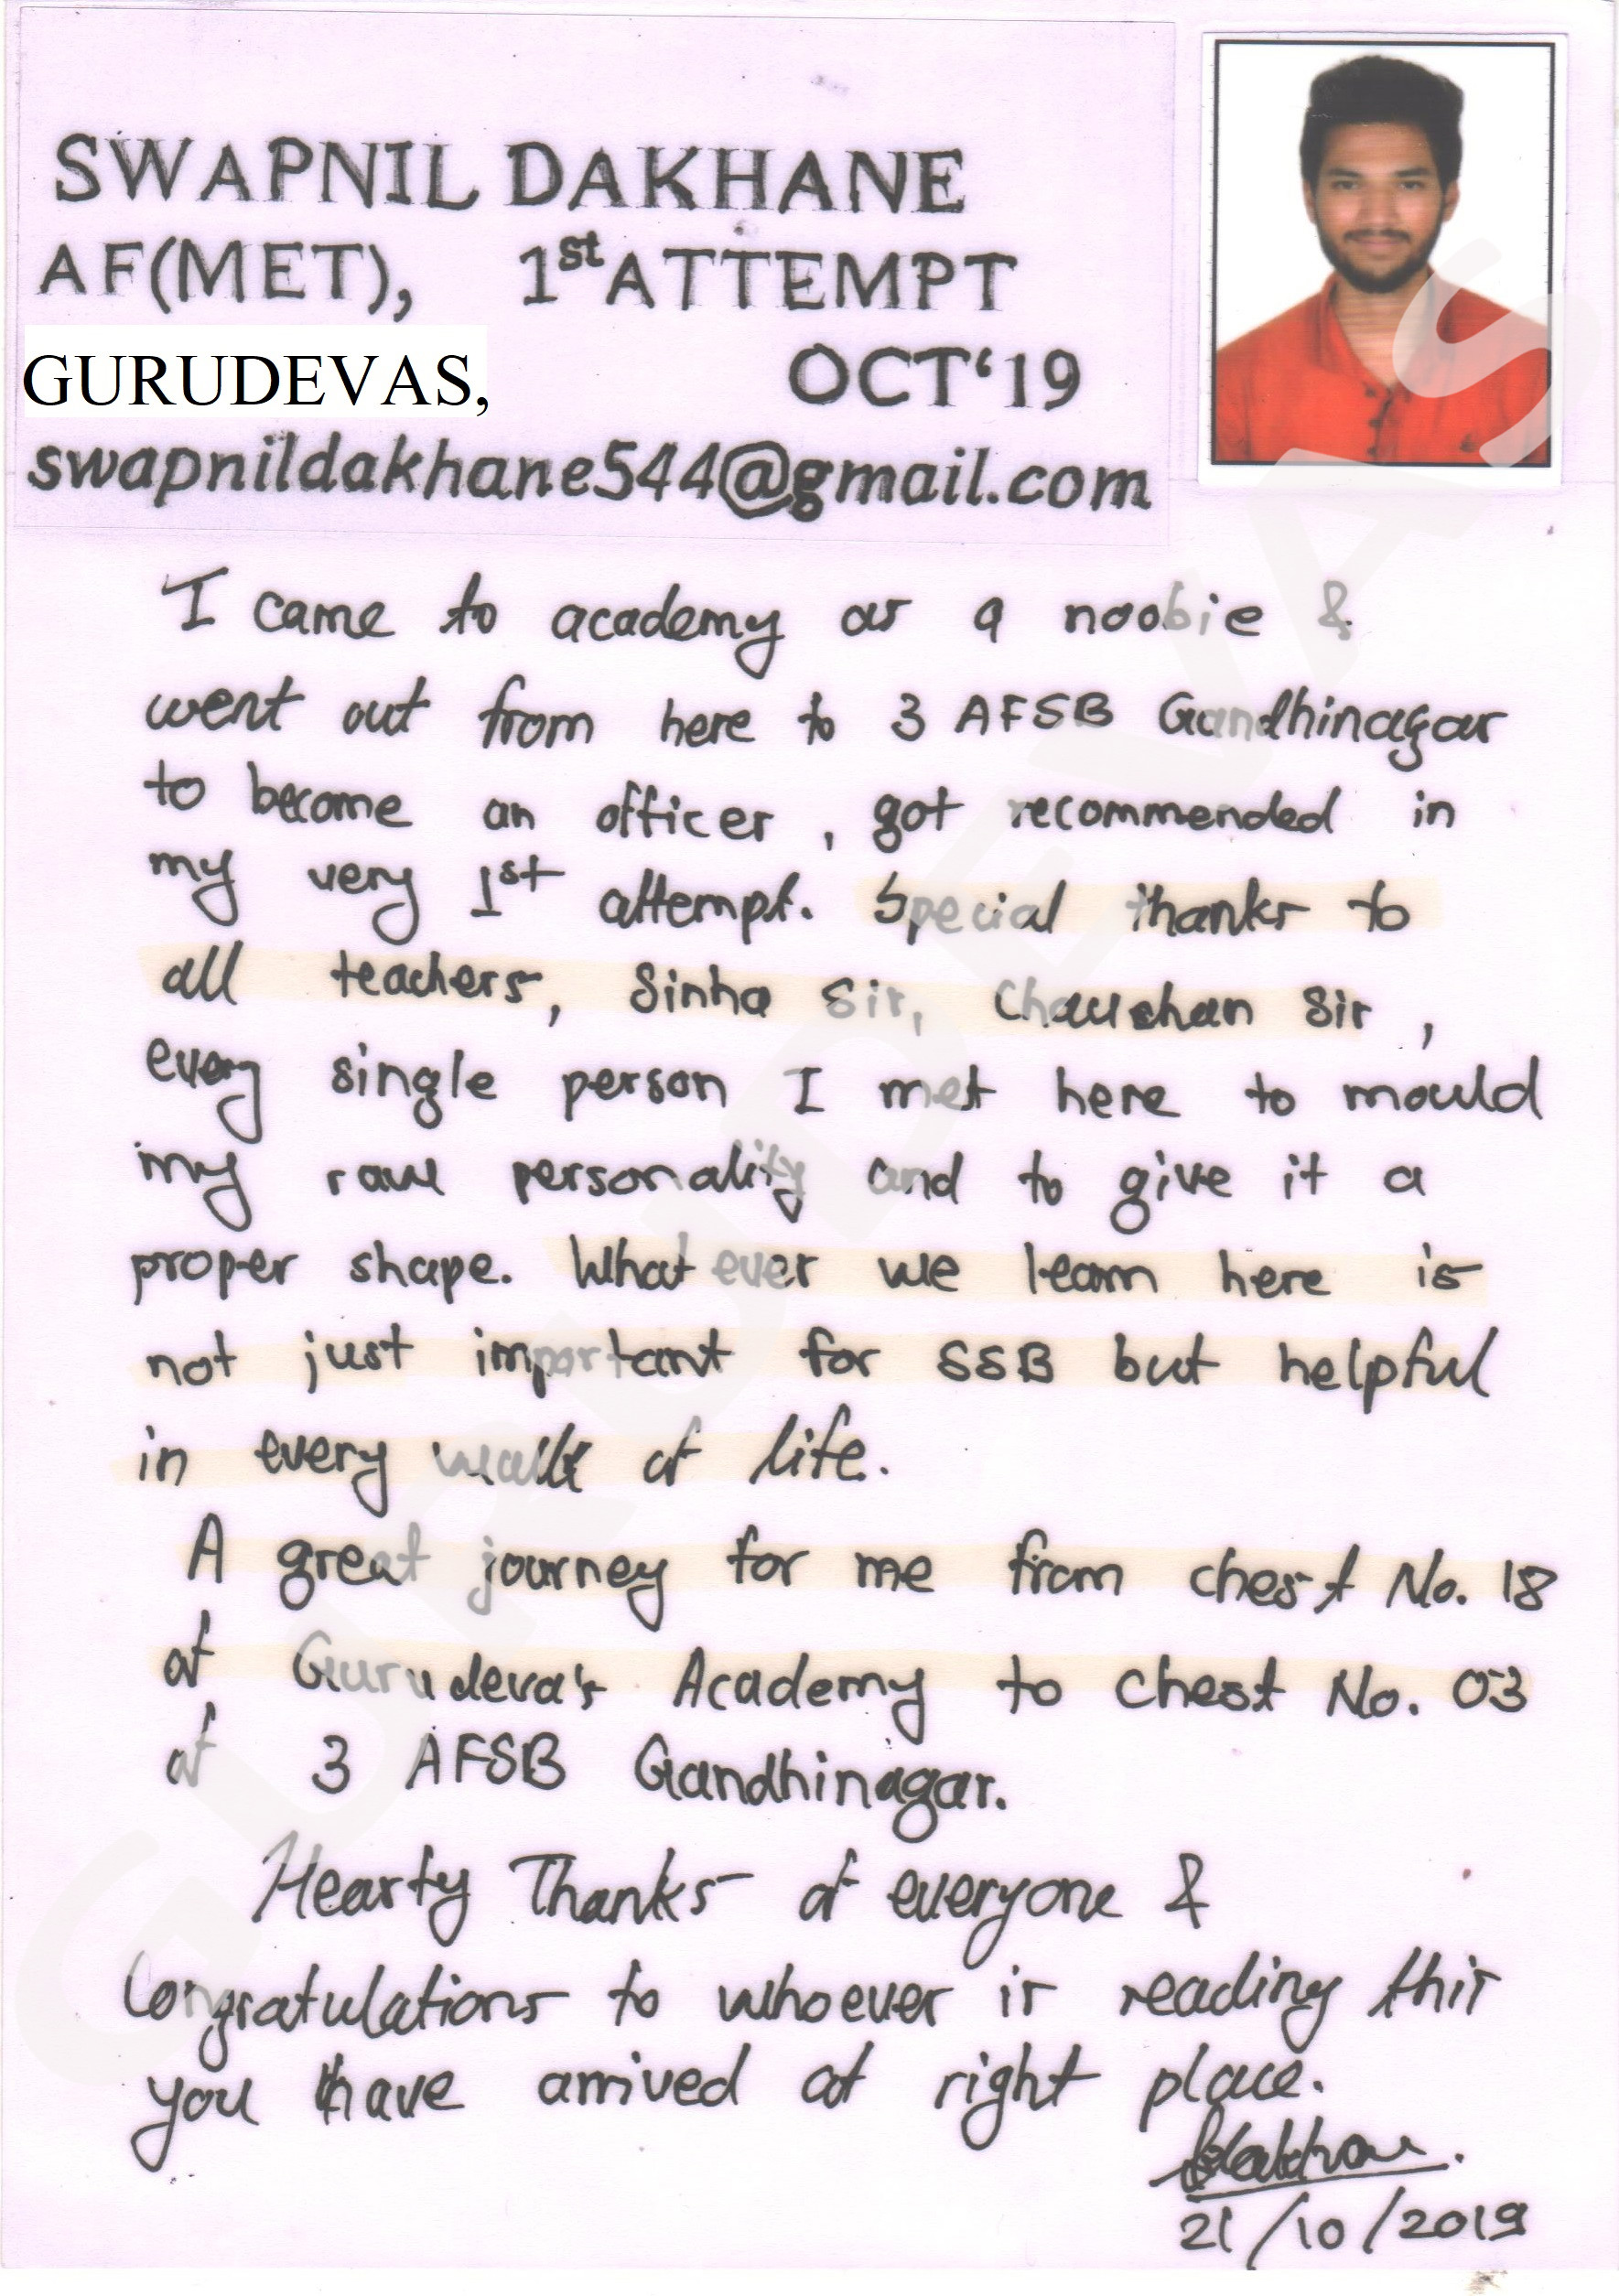 SWAPNIL DAKHANE
AF(MET), 1st ATTEMPT
GURUDEVAS, OCT‘19
swapnildakhane544@gmail.com
I came to academy as a noobie &
went out from here to 3 AFSB Gandhinagar
to become an officer, got recommended in
my very 1st attempt. Special thanks to
all teachers, Sinha Sir, Chauhan Sir,
every single person I met here to mould
my raw personality and to give it a
proper shape. What ever we learn here is
not just important for SSB but helpful
in every walk of life.
A great journey for me from chest No. 18
at Gurudeva's Academy to chest No. 03
at 3 AFSB Gandhinagar.
Hearty Thanks at everyone &
Congratulations to whoever is reading this
you have arrived at right place.
21/10/2019
GURUDEVAS